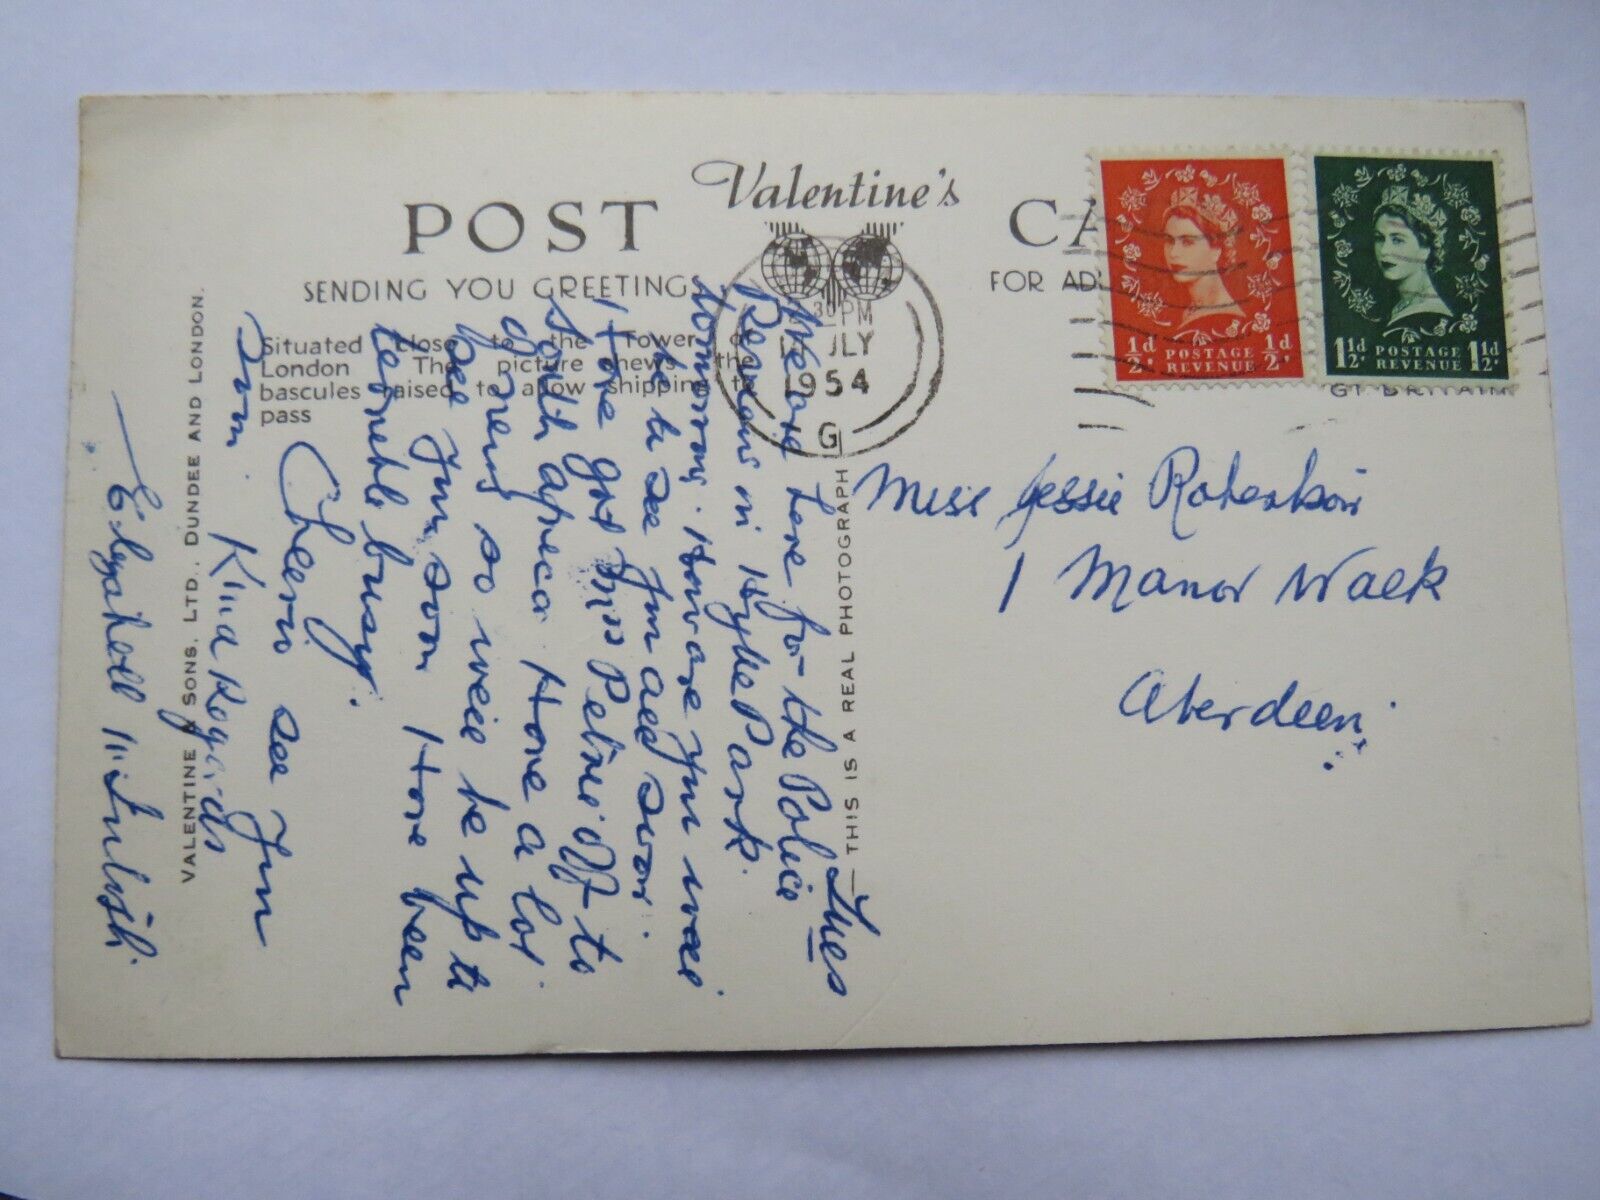 POST Valentine's CA
SENDING YOU GREETINGS
FOR AD
Situated close to the Tower of
London The picture shews the
bascules raised to allow shipping to
pass
30PM
JLY
1954
G
½d. POSTAGE REVENUE ½d.
1½d. POSTAGE REVENUE 1½d.
GT. BRITAIN
VALENTINE & SONS, LTD., DUNDEE AND LONDON.
THIS IS A REAL PHOTOGRAPH
Miss Jessie Robertson
1 Manor Walk
Aberdeen
Tues
We are here for the Police
Review in Hyde Park
tomorrow. How are you
to see you all soon
Have got Miss Petrie off to
South Africa. Have a lot
of news so will be up to
see you soon Have been
terrible busy.
Cheerio see you
soon
Kind Regards
Elizabeth